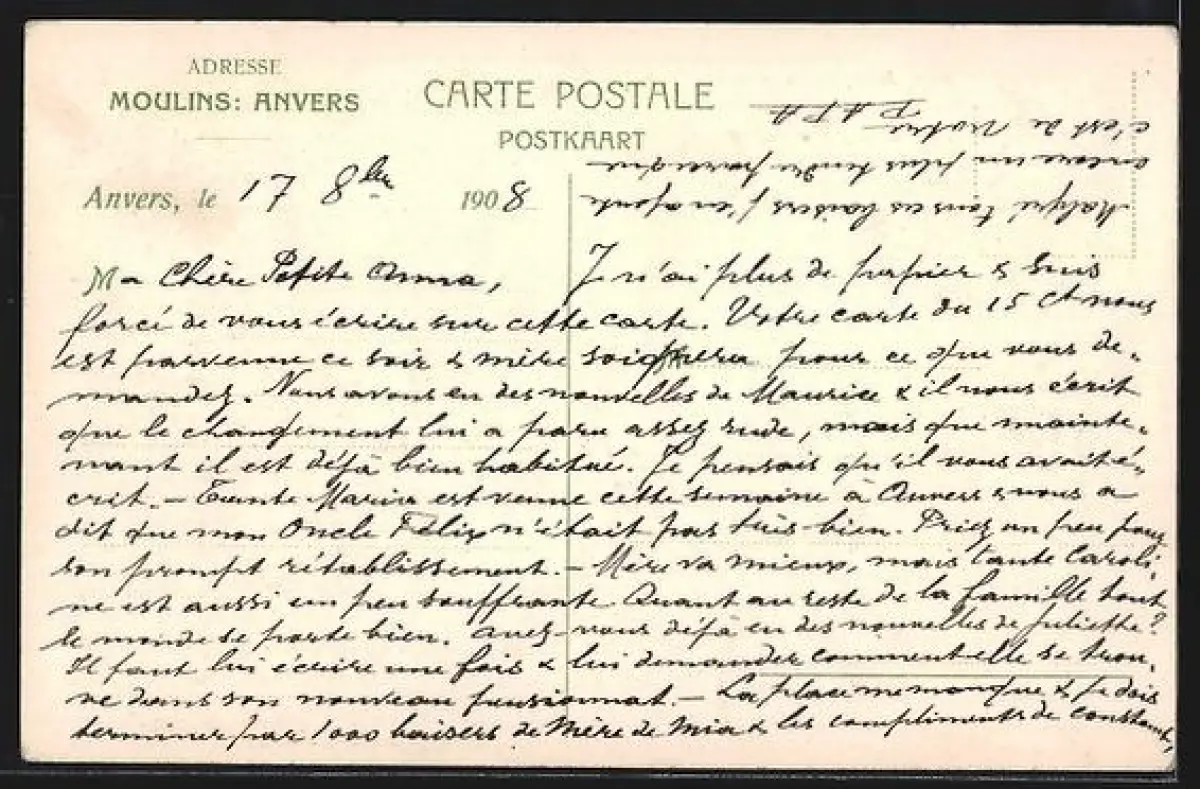 ADRESSE
MOULINS: ANVERS
CARTE POSTALE
POSTKAART
Anvers, le 17 8bre 1908
Ma Chère Petite Anna,
Je n'ai plus de papier & suis
forcé de vous écrire sur cette carte. Votre carte du 15 ct nous
est parvenue ce soir & mère soignera pour ce que vous de-
mandez. Nous avons eu des nouvelles de Maurice & il nous écrit
que le changement lui a paru assez rude, mais que mainte-
nant il est déjà bien habitué. Je pensais qu'il vous avait é-
crit. - Tante Maria est venue cette semaine à Anvers & nous a
dit que mon Oncle Félix n'était pas très bien. Priez un peu pour
son prompt rétablissement. - Mère va mieux, mais tante Caroli-
ne est aussi un peu souffrante. Quant au reste de la famille tout
le monde se porte bien. Avez-vous déjà eu des nouvelles de Juliette?
Il faut lui écrire une fois & lui demander comment elle se trou-
ve dans son nouveau pensionnat. - La place me manque & je dois
terminer par 1000 baisers de Mère de Mia & les compliments de Constant,
Malgré tous ces baisers j'en ajoute
encore un plus tendre parce que
c'est de Votre
PAPA